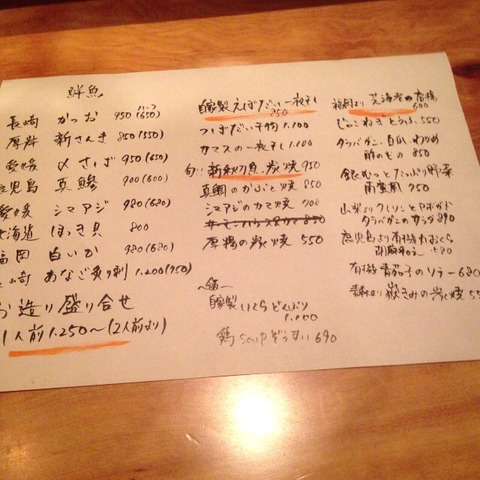 鮮魚
ハーフ
長崎 かつお 950 (650)
厚岸 新さんま 850 (550)
愛媛 〆さば 950 (650)
鹿児島 真鯵 900 (600)
愛媛 シマアジ 980 (680)
北海道 ほっき貝 800
福岡 白いか 980 (680)
長崎 あなご炙り刺 1.200 (950)
お造り盛り合せ
1人前 1.250〜 (2人前より)
自家製 えぼだい一夜干し
750
つぼだい干物 1.100
カマスの一夜干し 1.100
旬!! 新秋刀魚 炭焼 950
真鯛のかぶと焼 850
シマアジのカマ焼 700
厚揚の炭焼 550
〜飯〜
自家製 いくらどんぶり
1.000
鶏 soup ぞうすい 690
600
じゃこねぎとうふ 550
タラバガニ、白瓜、わかめ
酢のもの 850
750
山梨よりクレソンとアボカド
タラバガニのサラダ 890
鹿児島より有機おくら
胡麻和え
有機青茄子のソテー 680
青森より嶽きみの炭焼